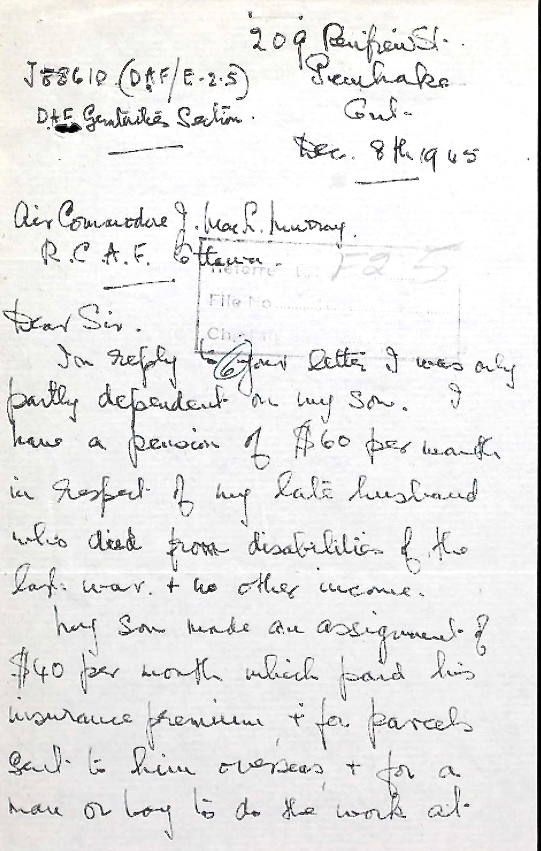 209 Renfrew St.
Pembroke
Ont.
J88610 (DAF/E-2-5)
D.A.F. Gratuities Section.
Dec. 8th 1945
Air Commodore J. Mac L. Murray.
R.C.A.F. Ottawa.
F25
File No
Dear Sir.
In reply to your letter I was only
partly dependent on my son. I
have a pension of $60 per month
in respect of my late husband
who died from disabilities of the
last war. + no other income.
My son made an assignment of
$40 per month which paid his
insurance premium + for parcels
sent to him overseas, + for a
man or boy to do the work at